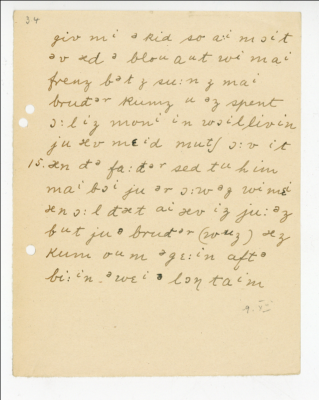 34
giv mi ə kid so ai mɔit
əv ӕd ə blouaut wi mai
frenz bət ʒ su:n ʒ mai
bruđər kumz u əʒ spent
ɔ:l iz moni in wɔil livin
ju ӕv meid mutʃ ɔ:v it
15. ӕn đə fa:đər sed tu him
mai bɔi ju ər ɔ:wəʒ wi mi
ӕn ɔ:l đӕt ai ӕv iz ju:əz
but juə bruđər (wuz) ӕz
kum oum əgɛ:in aftə
bi:in əwei ə lɔŋ taim